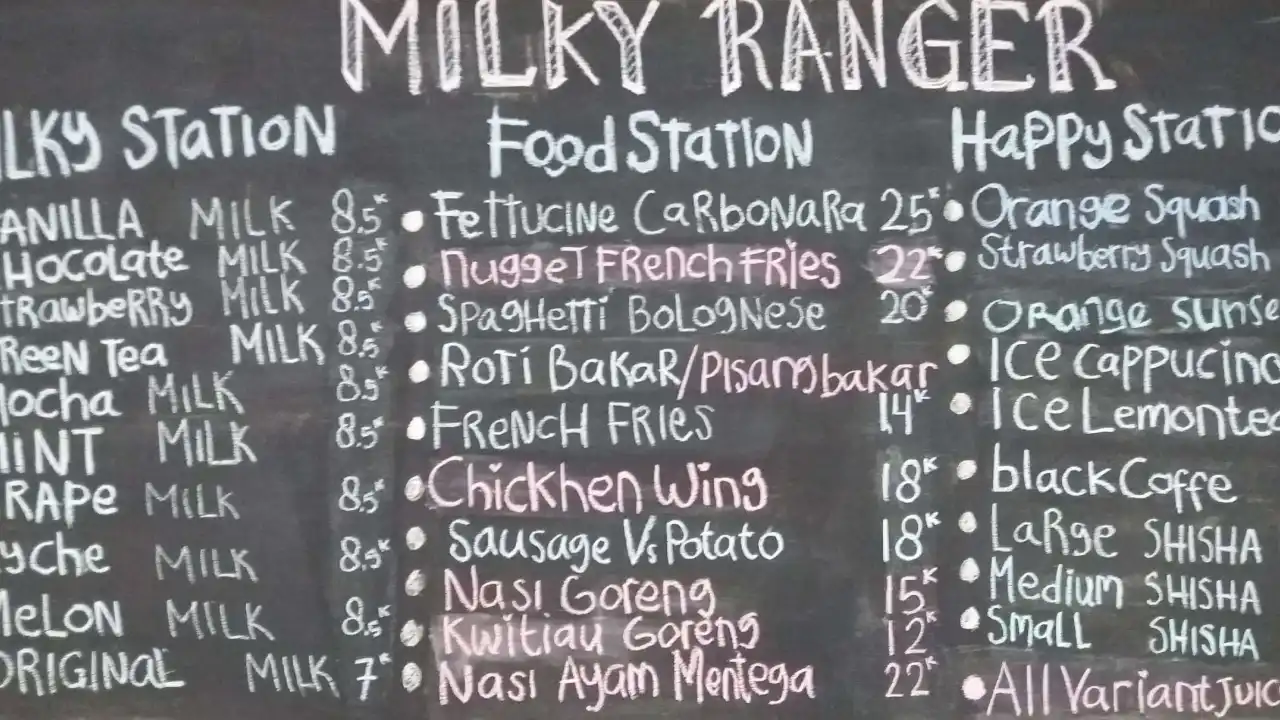 MILKY RANGER
LKY STATION
ANILLA MILK 8.5K
HOCOLATE MILK 8.5K
TRAWBERRY MILK 8.5K
REEN TEA MILK 8.5K
OCHA MILK 8.5K
MINT MILK 8.5K
RAPE MILK 8.5K
YCHE MILK 8.5K
MELON MILK 8.5K
ORIGINAL MILK 7K
Food STATION
• FETTUCINE CARBONARA 25K
• NUGGET FRENCH FRIES 22K
• SPAGHETTI BOLOGNESE 20K
• ROTI BAKAR/PISANG bakar
• FRENCH FRIES 14K
• Chickhen Wing 18K
• Sausage Vs Potato 18K
• Nasi Goreng 15K
• Kwitiau Goreng 12K
• Nasi Ayam Mentega 22K
Happy STATIO
• Orange Squash
• Strawberry Squash
• Orange sunse
• Ice Cappucino
• Ice Lemontea
• black Coffe
• Large SHISHA
• Medium SHISHA
• Small SHISHA
• All Variant JUIC